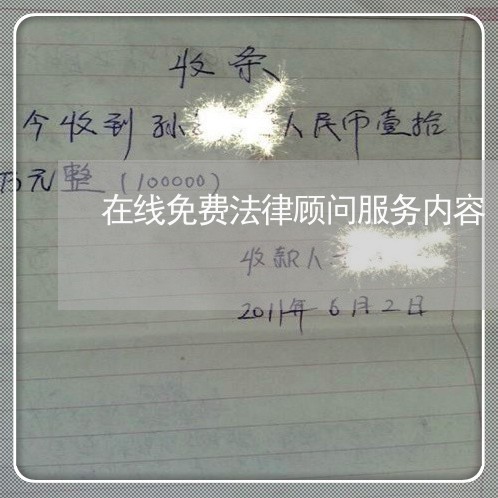 收条
今收到孙 人民币壹拾
万元整（100000）
在线免费法律顾问服务内容
收款人
2011年6月2日